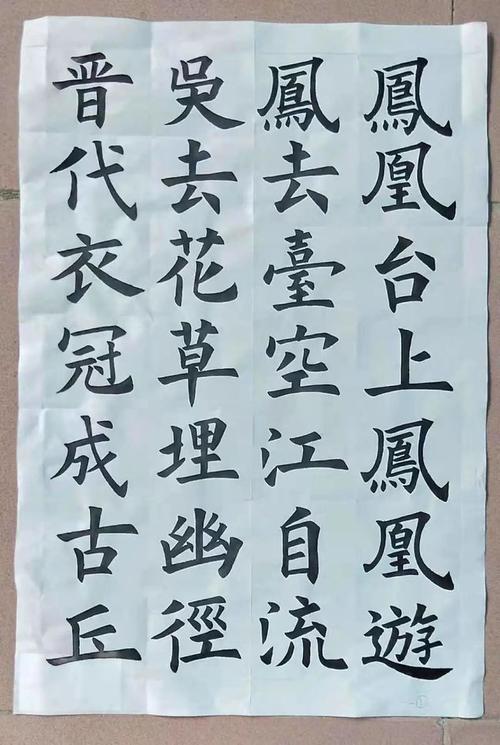 鳳凰台上鳳凰遊
鳳去臺空江自流
吳去花草埋幽徑
晋代衣冠成古丘
一①